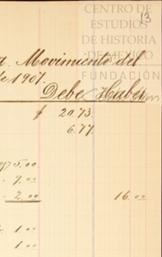 13
CENTRO DE
ESTUDIOS
DE HISTORIA
DE MEXICO
FUNDACIÓN
Movimiento del
de 1907.
Debe Haber
$ 20.73
6.77
75.00
9.00
2.00 16.00
1 00
1 00